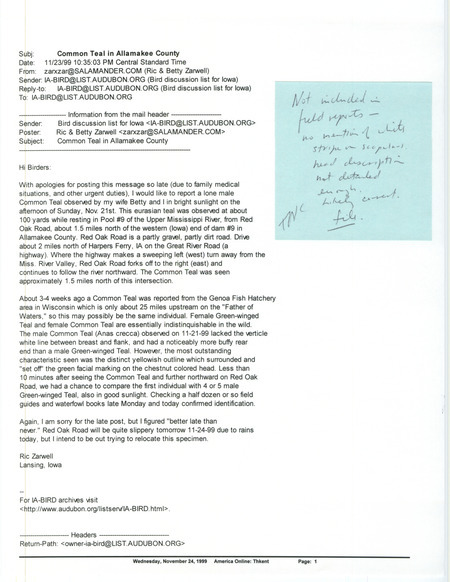 Subj: Common Teal in Allamakee County
Date: 11/23/99 10:35:03 PM Central Standard Time
From: zarxzar@SALAMANDER.COM (Ric & Betty Zarwell)
Sender: IA-BIRD@LIST.AUDUBON.ORG (Bird discussion list for Iowa)
Reply-to: IA-BIRD@LIST.AUDUBON.ORG (Bird discussion list for Iowa)
To: IA-BIRD@LIST.AUDUBON.ORG
Information from the mail header
Sender: Bird discussion list for Iowa <IA-BIRD@LIST.AUDUBON.ORG>
Poster: Ric & Betty Zarwell <zarxzar@SALAMANDER.COM>
Subject: Common Teal in Allamakee County
Hi Birders:
With apologies for posting this message so late (due to family medical
situations, and other urgent duties), I would like to report a lone male
Common Teal observed by my wife Betty and I in bright sunlight on the
afternoon of Sunday, Nov. 21st. This eurasian teal was observed at about
100 yards while resting in Pool #9 of the Upper Mississippi River, from Red
Oak Road, about 1.5 miles north of the western (Iowa) end of dam #9 in
Allamakee County. Red Oak Road is a partly gravel, partly dirt road. Drive
about 2 miles north of Harpers Ferry, IA on the Great River Road (a
highway). Where the highway makes a sweeping left (west) turn away from the
Miss. River Valley, Red Oak Road forks off to the right (east) and
continues to follow the river northward. The Common Teal was seen
approximately 1.5 miles north of this intersection.
About 3-4 weeks ago a Common Teal was reported from the Genoa Fish Hatchery
area in Wisconsin which is only about 25 miles upstream on the "Father of
Waters," so this may possibly be the same individual. Female Green-winged
Teal and female Common Teal are essentially indistinguishable in the wild.
The male Common Teal (Anas crecca) observed on 11-21-99 lacked the verticle
white line between breast and flank, and had a noticeably more buffy rear
end than a male Green-winged Teal. However, the most outstanding
characteristic seen was the distinct yellowish outline which surrounded and
"set off" the green facial marking on the chestnut colored head. Less than
10 minutes after seeing the Common Teal and further northward on Red Oak
Road, we had a chance to compare the first individual with 4 or 5 male
Green-winged Teal, also in good sunlight. Checking a half dozen or so field
guides and waterfowl books late Monday and today confirmed identification.
Again, I am sorry for the late post, but I figured "better late than
never." Red Oak Road will be quite slippery tomorrow 11-24-99 due to rains
today, but I intend to be out trying to relocate this specimen.
Ric Zarwell
Lansing, Iowa
--
For IA-BIRD archives visit
<http://www.audubon.org/listserv/IA-BIRD.html>.
Headers
Return-Path: <owner-ia-bird@LIST.AUDUBON.ORG>
Wednesday, November 24, 1999 America Online: Thkent Page: 1
Not included in
field reports —
no mention of white
stripe on scapulars
head description
not detailed
enough.
Likely correct.
file.